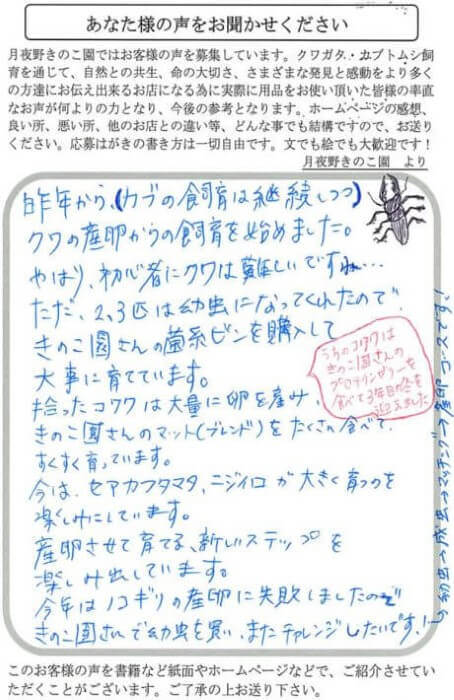 あなた様の声をお聞かせください
月夜野きのこ園ではお客様の声を募集しています。クワガタ・カブトムシ飼
育を通じて、自然との共生、命の大切さ、さまざまな発見と感動をより多く
の方達にお伝え出来るお店になる為に実際に用品をお使い頂いた皆様の率直
なお声が何よりの力となり、今後の参考となります。ホームページの感想、
良い所、悪い所、他のお店との違い等、どんな事でも結構ですので、お送り
ください。応募はがきの書き方は一切自由です。文でも絵でも大歓迎です！
月夜野きのこ園 より
昨年から、(カブの飼育は継続しつつ)
クワの産卵からの飼育を始めました。
やはり、初心者にクワは難しいですね…
ただ、2、3匹は幼虫になってくれたので、
きのこ園さんの菌糸ビンを購入して
大事に育てています。
拾ったコクワは大量に卵を産み、
きのこ園さんのマット(ブレンド)をたくさん食べて、
すくすく育っています。
今は、セアカフタマタ、ニジイロが大きく育つのを
楽しみにしています。
産卵させて育てる、新しいステップを
楽しみ出しています。
今年はノコギリの産卵に失敗しましたので
きのこ園さんで幼虫を買い、またチャレンジしたいです！
→幼虫→成虫→マッチング→産卵コースです！
うちのコクワは
きのこ園さんの
プロテインゼリーを
食べて3年目の冬を
迎えました
このお客様の声を書籍など紙面やホームページなどで、ご紹介させてい
ただくことがございます。ご了承の上お送り下さい。